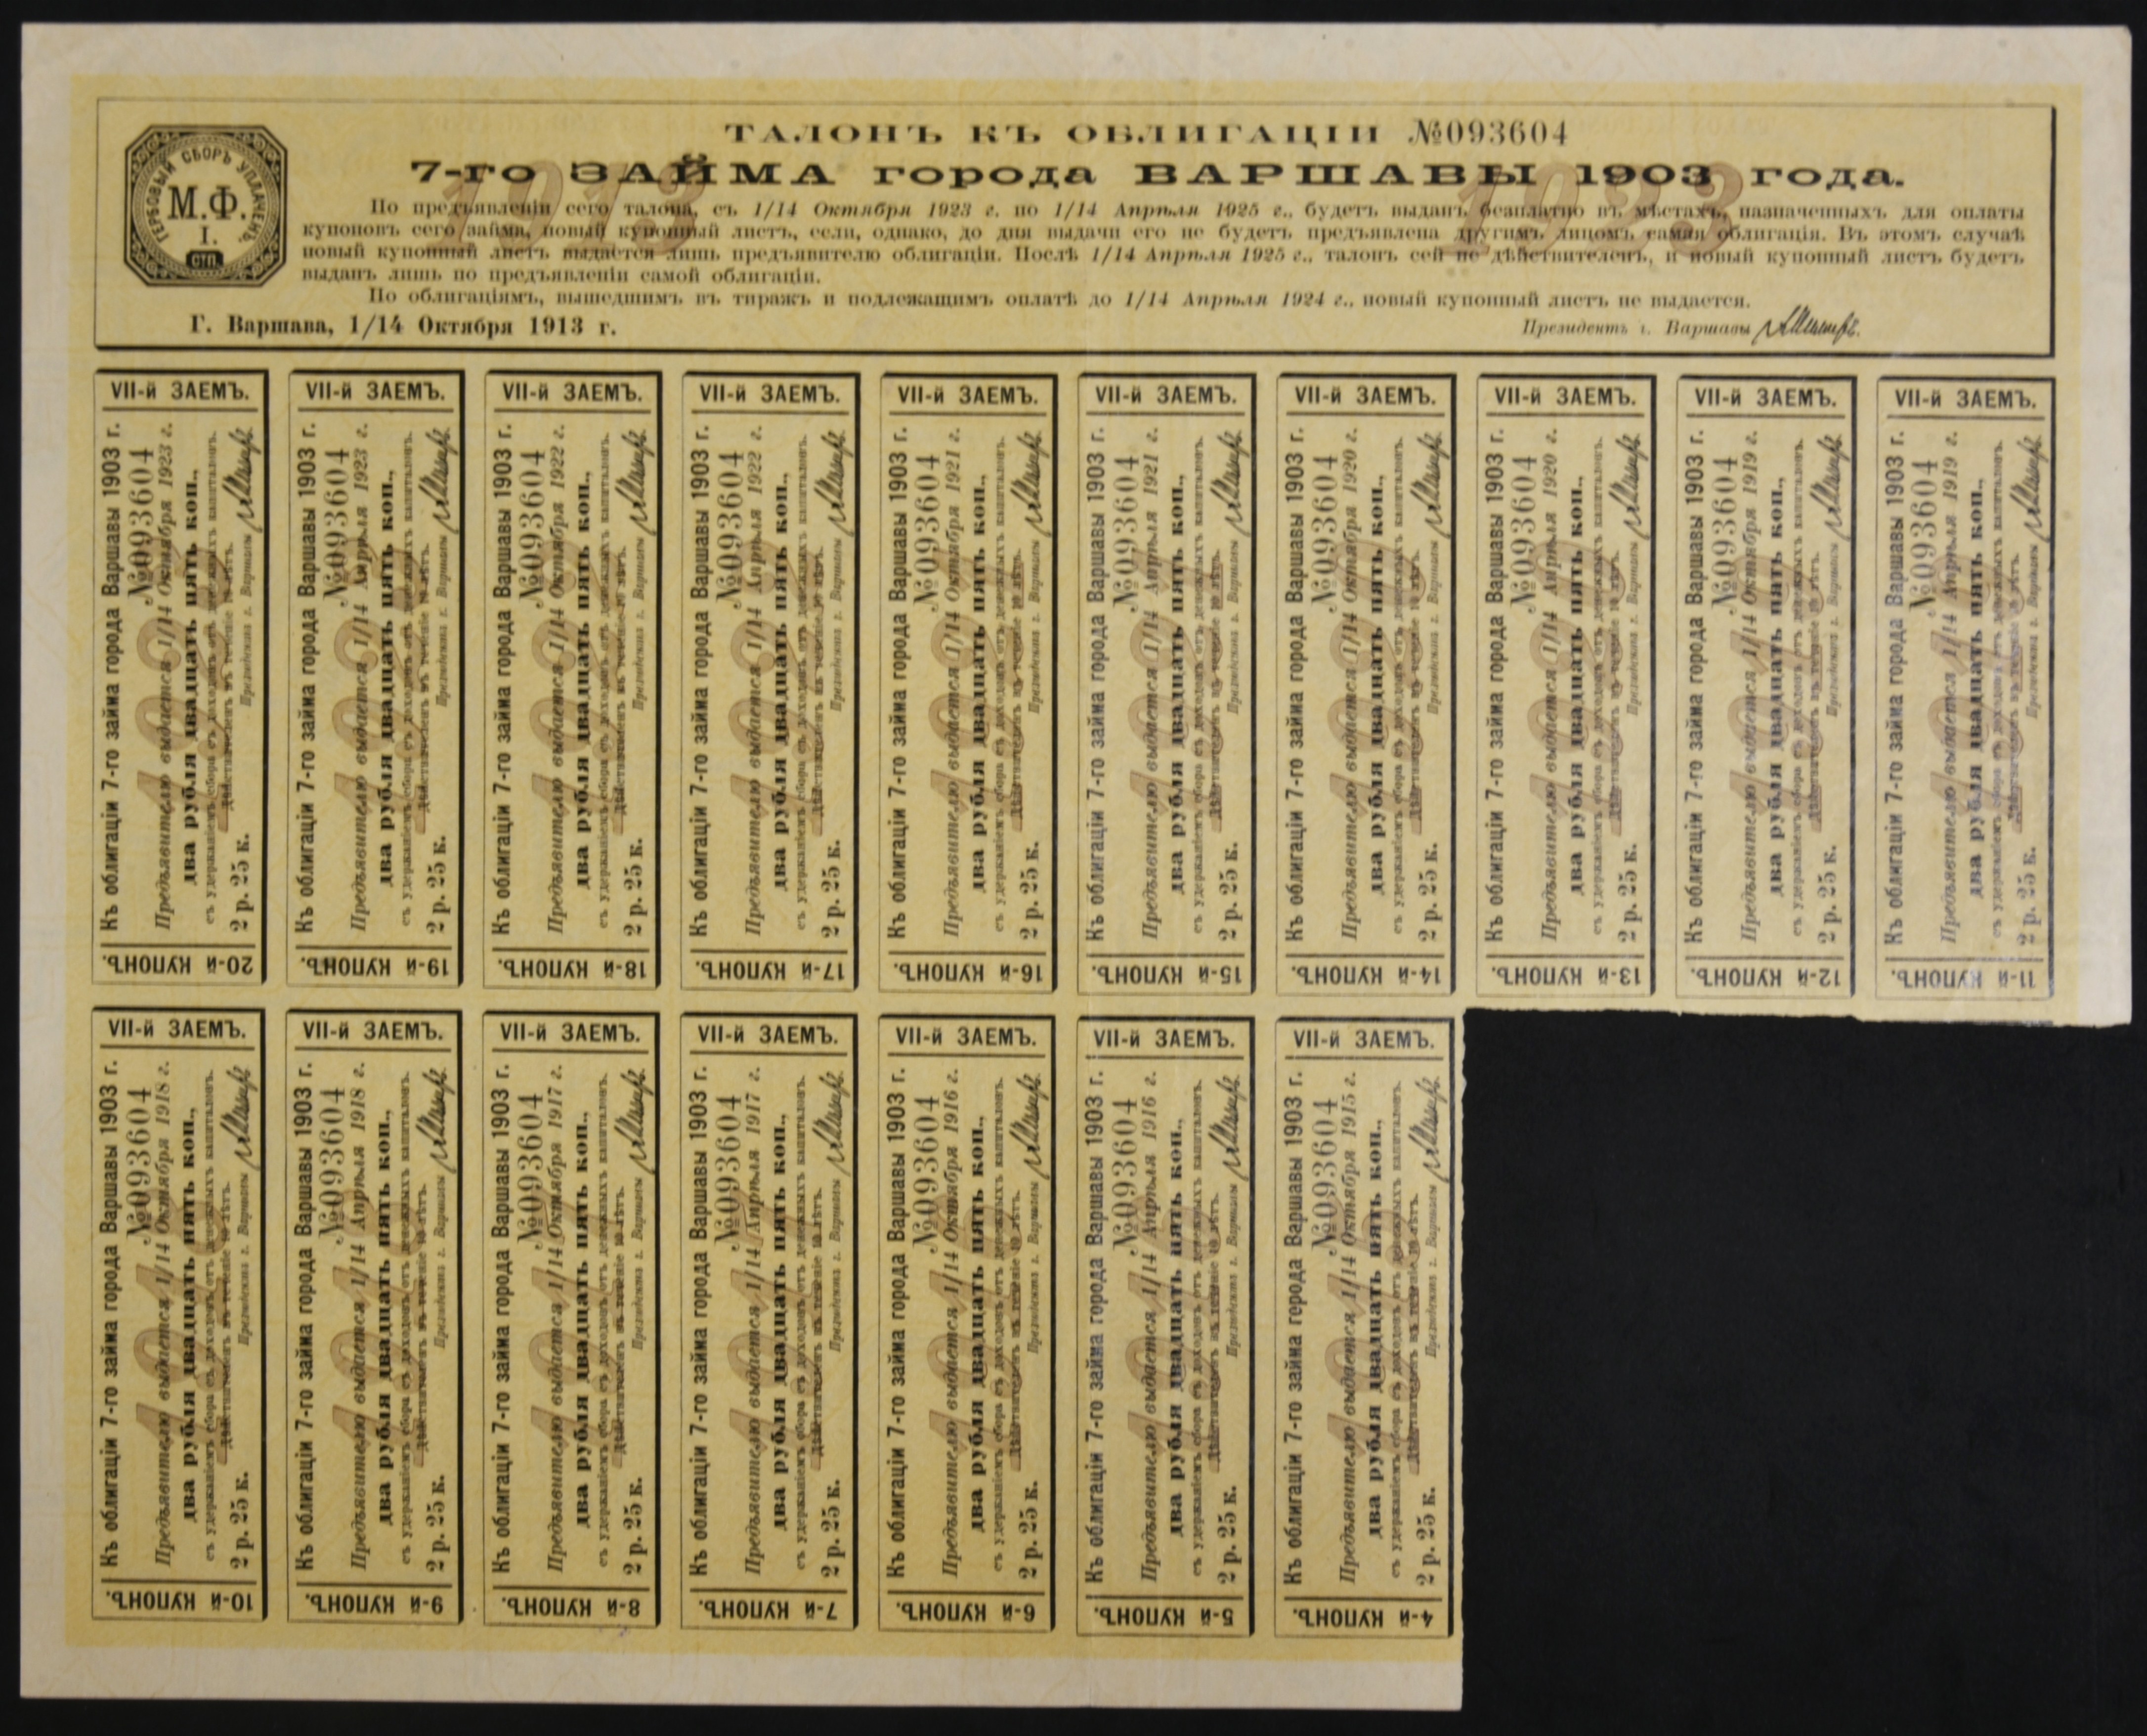 ТАЛОНЪ КЪ ОБЛИГАЦІИ №093604
7-го ЗАЙМА города ВАРШАВЫ 1903 года.
ГЕРБОВЫЙ СБОРЪ УПЛАЧЕНЪ.
М.Ф.
I.
СТП.
По предъявленіи сего талона, съ 1/14 Октября 1923 г. по 1/14 Апрѣля 1925 г., будетъ выданъ безплатно въ мѣстахъ, назначенныхъ для оплаты
купоновъ сего займа, новый купонный листъ, если, однако, до дня выдачи его не будетъ предъявлена другимъ лицомъ самая облигація. Въ этомъ случаѣ
новый купонный листъ выдается лишь предъявителю облигаціи. Послѣ 1/14 Апрѣля 1925 г., талонъ сей не дѣйствителенъ, и новый купонный листъ будетъ
выданъ лишь по предъявленіи самой облигаціи.
По облигаціямъ, вышедшимъ въ тиражъ и подлежащимъ оплатѣ до 1/14 Апрѣля 1924 г., новый купонный листъ не выдается.
Г. Варшава, 1/14 Октября 1913 г.
Президентъ г. Варшавы
1913
1923
VII-й ЗАЕМЪ.
Къ облигаціи 7-го займа города Варшавы 1903 г.
№093604
Предъявителю выдается 1/14 Октября 1923 г.
два рубля двадцать пять коп.,
съ удержаніемъ сбора съ доходовъ отъ денежныхъ капиталовъ.
Дѣйствителенъ въ теченіе 10 лѣтъ.
2 р. 25 к.
Президентъ г. Варшавы
20-й КУПОНЪ.
VII-й ЗАЕМЪ.
Къ облигаціи 7-го займа города Варшавы 1903 г.
№093604
Предъявителю выдается 1/14 Апрѣля 1923 г.
два рубля двадцать пять коп.,
съ удержаніемъ сбора съ доходовъ отъ денежныхъ капиталовъ.
Дѣйствителенъ въ теченіе 10 лѣтъ.
2 р. 25 к.
Президентъ г. Варшавы
19-й КУПОНЪ.
VII-й ЗАЕМЪ.
Къ облигаціи 7-го займа города Варшавы 1903 г.
№093604
Предъявителю выдается 1/14 Октября 1922 г.
два рубля двадцать пять коп.,
съ удержаніемъ сбора съ доходовъ отъ денежныхъ капиталовъ.
Дѣйствителенъ въ теченіе 10 лѣтъ.
2 р. 25 к.
Президентъ г. Варшавы
18-й КУПОНЪ.
VII-й ЗАЕМЪ.
Къ облигаціи 7-го займа города Варшавы 1903 г.
№093604
Предъявителю выдается 1/14 Апрѣля 1922 г.
два рубля двадцать пять коп.,
съ удержаніемъ сбора съ доходовъ отъ денежныхъ капиталовъ.
Дѣйствителенъ въ теченіе 10 лѣтъ.
2 р. 25 к.
Президентъ г. Варшавы
17-й КУПОНЪ.
VII-й ЗАЕМЪ.
Къ облигаціи 7-го займа города Варшавы 1903 г.
№093604
Предъявителю выдается 1/14 Октября 1921 г.
два рубля двадцать пять коп.,
съ удержаніемъ сбора съ доходовъ отъ денежныхъ капиталовъ.
Дѣйствителенъ въ теченіе 10 лѣтъ.
2 р. 25 к.
Президентъ г. Варшавы
16-й КУПОНЪ.
VII-й ЗАЕМЪ.
Къ облигаціи 7-го займа города Варшавы 1903 г.
№093604
Предъявителю выдается 1/14 Апрѣля 1921 г.
два рубля двадцать пять коп.,
съ удержаніемъ сбора съ доходовъ отъ денежныхъ капиталовъ.
Дѣйствителенъ въ теченіе 10 лѣтъ.
2 р. 25 к.
Президентъ г. Варшавы
15-й КУПОНЪ.
VII-й ЗАЕМЪ.
Къ облигаціи 7-го займа города Варшавы 1903 г.
№093604
Предъявителю выдается 1/14 Октября 1920 г.
два рубля двадцать пять коп.,
съ удержаніемъ сбора съ доходовъ отъ денежныхъ капиталовъ.
Дѣйствителенъ въ теченіе 10 лѣтъ.
2 р. 25 к.
Президентъ г. Варшавы
14-й КУПОНЪ.
VII-й ЗАЕМЪ.
Къ облигаціи 7-го займа города Варшавы 1903 г.
№093604
Предъявителю выдается 1/14 Апрѣля 1920 г.
два рубля двадцать пять коп.,
съ удержаніемъ сбора съ доходовъ отъ денежныхъ капиталовъ.
Дѣйствителенъ въ теченіе 10 лѣтъ.
2 р. 25 к.
Президентъ г. Варшавы
13-й КУПОНЪ.
VII-й ЗАЕМЪ.
Къ облигаціи 7-го займа города Варшавы 1903 г.
№093604
Предъявителю выдается 1/14 Октября 1919 г.
два рубля двадцать пять коп.,
съ удержаніемъ сбора съ доходовъ отъ денежныхъ капиталовъ.
Дѣйствителенъ въ теченіе 10 лѣтъ.
2 р. 25 к.
Президентъ г. Варшавы
12-й КУПОНЪ.
VII-й ЗАЕМЪ.
Къ облигаціи 7-го займа города Варшавы 1903 г.
№093604
Предъявителю выдается 1/14 Апрѣля 1919 г.
два рубля двадцать пять коп.,
съ удержаніемъ сбора съ доходовъ отъ денежныхъ капиталовъ.
Дѣйствителенъ въ теченіе 10 лѣтъ.
2 р. 25 к.
Президентъ г. Варшавы
11-й КУПОНЪ.
VII-й ЗАЕМЪ.
Къ облигаціи 7-го займа города Варшавы 1903 г.
№093604
Предъявителю выдается 1/14 Октября 1918 г.
два рубля двадцать пять коп.,
съ удержаніемъ сбора съ доходовъ отъ денежныхъ капиталовъ.
Дѣйствителенъ въ теченіе 10 лѣтъ.
2 р. 25 к.
Президентъ г. Варшавы
10-й КУПОНЪ.
VII-й ЗАЕМЪ.
Къ облигаціи 7-го займа города Варшавы 1903 г.
№093604
Предъявителю выдается 1/14 Апрѣля 1918 г.
два рубля двадцать пять коп.,
съ удержаніемъ сбора съ доходовъ отъ денежныхъ капиталовъ.
Дѣйствителенъ въ теченіе 10 лѣтъ.
2 р. 25 к.
Президентъ г. Варшавы
9-й КУПОНЪ.
VII-й ЗАЕМЪ.
Къ облигаціи 7-го займа города Варшавы 1903 г.
№093604
Предъявителю выдается 1/14 Октября 1917 г.
два рубля двадцать пять коп.,
съ удержаніемъ сбора съ доходовъ отъ денежныхъ капиталовъ.
Дѣйствителенъ въ теченіе 10 лѣтъ.
2 р. 25 к.
Президентъ г. Варшавы
8-й КУПОНЪ.
VII-й ЗАЕМЪ.
Къ облигаціи 7-го займа города Варшавы 1903 г.
№093604
Предъявителю выдается 1/14 Апрѣля 1917 г.
два рубля двадцать пять коп.,
съ удержаніемъ сбора съ доходовъ отъ денежныхъ капиталовъ.
Дѣйствителенъ въ теченіе 10 лѣтъ.
2 р. 25 к.
Президентъ г. Варшавы
7-й КУПОНЪ.
VII-й ЗАЕМЪ.
Къ облигаціи 7-го займа города Варшавы 1903 г.
№093604
Предъявителю выдается 1/14 Октября 1916 г.
два рубля двадцать пять коп.,
съ удержаніемъ сбора съ доходовъ отъ денежныхъ капиталовъ.
Дѣйствителенъ въ теченіе 10 лѣтъ.
2 р. 25 к.
Президентъ г. Варшавы
6-й КУПОНЪ.
VII-й ЗАЕМЪ.
Къ облигаціи 7-го займа города Варшавы 1903 г.
№093604
Предъявителю выдается 1/14 Апрѣля 1916 г.
два рубля двадцать пять коп.,
съ удержаніемъ сбора съ доходовъ отъ денежныхъ капиталовъ.
Дѣйствителенъ въ теченіе 10 лѣтъ.
2 р. 25 к.
Президентъ г. Варшавы
5-й КУПОНЪ.
VII-й ЗАЕМЪ.
Къ облигаціи 7-го займа города Варшавы 1903 г.
№093604
Предъявителю выдается 1/14 Октября 1915 г.
два рубля двадцать пять коп.,
съ удержаніемъ сбора съ доходовъ отъ денежныхъ капиталовъ.
Дѣйствителенъ въ теченіе 10 лѣтъ.
2 р. 25 к.
Президентъ г. Варшавы
4-й КУПОНЪ.